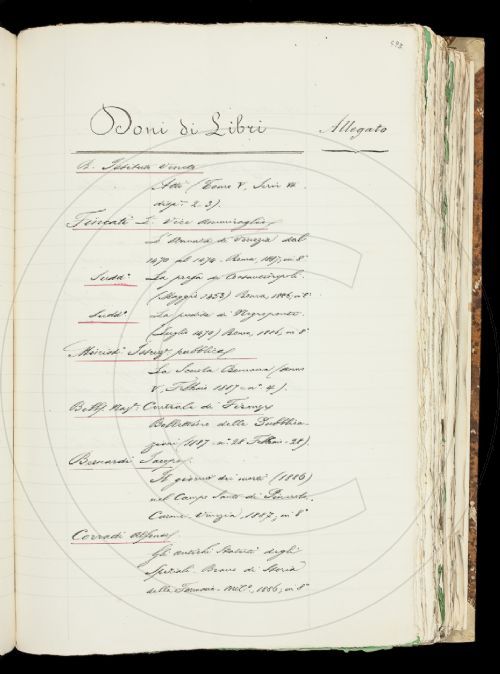 Doni di Libri Allegato
R. Istituto Veneto
Atti (Tomo V, Serie VI
disp. 2-3).
Fincati L. Vice Ammiraglio
L'Armata di Venezia dal
1470 al 1474 - Roma, 1887, in 8°
Sudd.° La presa di Costantinopoli
(Maggio 1453) Roma, 1886, in 8°
Sudd.° La perdita di Negroponte
(Luglio 1470) Roma, 1886, in 8°
Istruz.e pubblica
La Scuola Romana (anno
V, Febbraio 1887 - n.° 4).
Centrale di Firenze
Bollettino delle Pubblica-
zioni (1887 - n.° 28 Febbraio - 28)
Bernardi Jacopo
Il giorno dei morti (1886)
nel Campo Santo di Pinerolo.
Venezia, 1887, in 8°
Corradi Alfonso
Gli antichi Statuti degli
Speziali. Brano di Storia
della Farmacia - Mil.°, 1886, in 8°